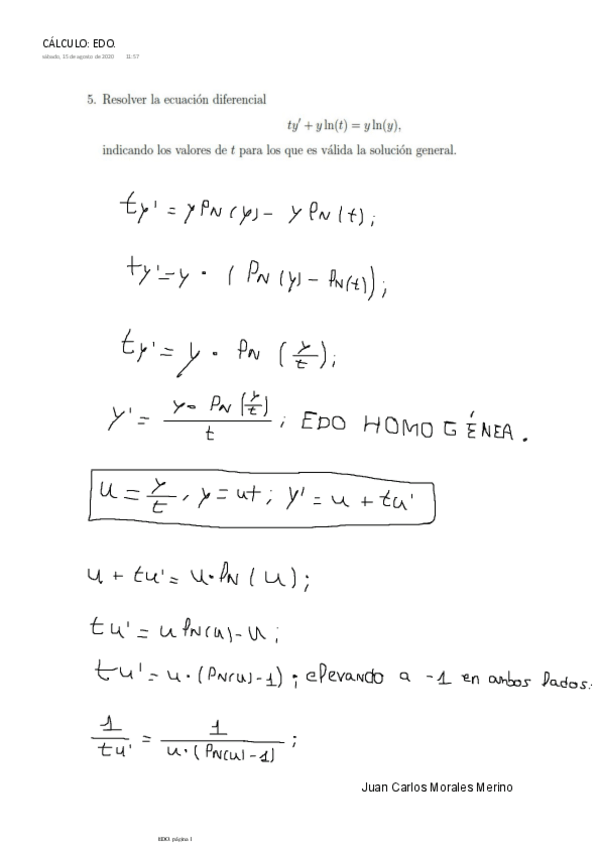 CÁLCULO: EDO.
sábado, 15 de agosto de 2020 11:57
5. Resolver la ecuación diferencial
ty' + y ln(t) = y ln(y),
indicando los valores de t para los que es válida la solución general.
ty' = y ln(y) - y ln(t);
ty' = y · (ln(y) - ln(t));
ty' = y · ln (y/t);
y' = y · ln(y/t) / t ; EDO HOMOGÉNEA.
u = y/t, y = ut; y' = u + tu'
u + tu' = u · ln(u);
tu' = u ln(u) - u;
tu' = u · (ln(u) - 1); elevando a -1 en ambos lados.
1/tu' = 1/u · (ln(u) - 1) ;
Juan Carlos Morales Merino
EDO página 1